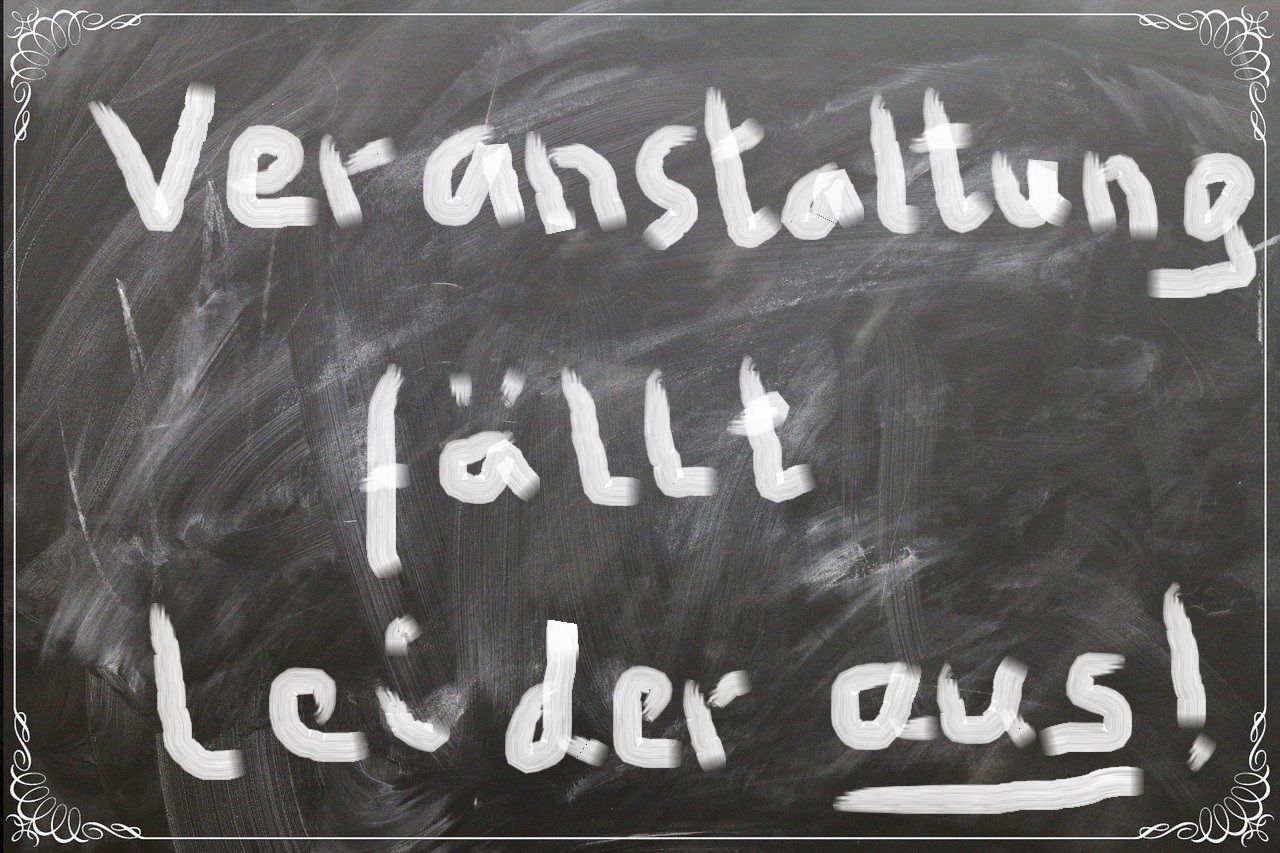 Veranstaltung
fällt
leider aus!